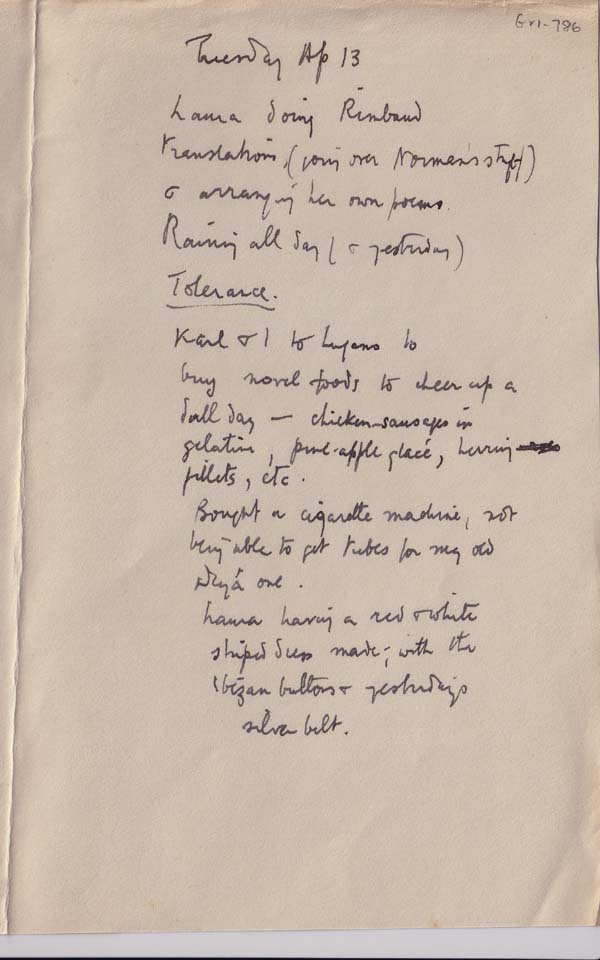 Gri-786
Tuesday Ap 13
Laura doing Rimbaud
translations, (going over Norman's stuff)
& arranging her own poems.
Raining all day (& yesterday)
Tolerance.
Karl & I to Lugano to
buy novel foods to cheer up a
dull day — chicken-sausages in
gelatine, pine-apple glacé, herring
fillets, etc.
Bought a cigarette machine, not
being able to get tubes for my old
Deyá one.
Laura having a red & white
striped dress made; with the
Ibizan buttons & yesterday's
silver belt.